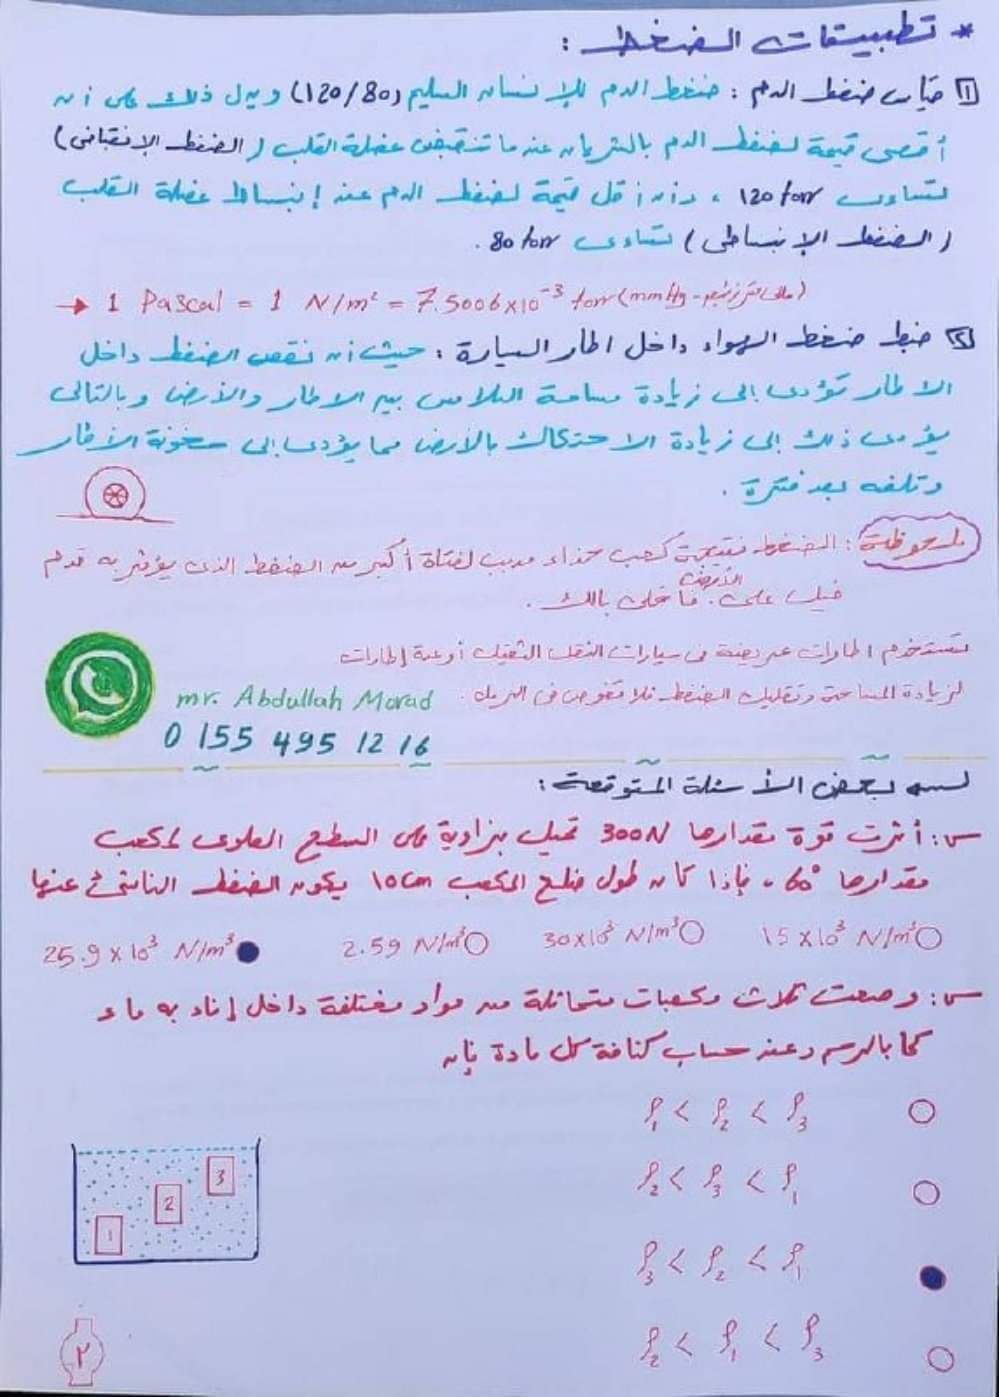 * تطبيقات الضغط :
١ قياس ضغط الدم : ضغط الدم للإنسان السليم (120/80) ويدل ذلك على أن
أقصى قيمة لضغط الدم بالشريان عندما تنقبض عضلة القلب (الضغط الإنقباضى)
تساوى 120 torr ، وأن أقل قيمة لضغط الدم عند إنبساط عضلة القلب
(الضغط الإنبساطى) تساوى 80 torr .
→ 1 Pascal = 1 N/m² = 7.5006×10⁻³ torr (mmHg - مللى متر زئبق)
٢ ضبط ضغط الهواء داخل اطار السيارة : حيث أن نقص الضغط داخل
الاطار تؤدى إلى زيادة مساحة التلامس بين الاطار والأرض وبالتالى
يؤدى ذلك إلى زيادة الاحتكاك بالأرض مما يؤدى إلى سخونة الأطار
وتلفه بعد فترة .
ملحوظة : الضغط نتيجة كعب حذاء مدبب لفتاة أكبر من الضغط الذى يؤثر به قدم
فيل على الأرض . فا خلى بالك .
تستخدم اطارات عريضة فى سيارات النقل الثقيل أو عدة إطارات
لزيادة المساحة وتقليل الضغط فلا تغوص فى الرمل .
mr. Abdullah Morad
0 155 495 12 16
لسه بعض الأسئلة المتوقعة :
س : أثرت قوة مقدارها 300N تميل بزاوية على السطح العلوى لمكعب
مقدارها 60° ، فإذا كان طول ضلع المكعب 10cm يكون الضغط الناشئ عنها
15×10³ N/m³ 30×10³ N/m³ 2.59 N/m³ 25.9×10³ N/m³
س : وضعت ثلاث مكعبات متماثلة من مواد مختلفة داخل إناء به ماء
كما بالرسم وعند حساب كثافة كل مادة فإن
ρ₁ < ρ₂ < ρ₃
ρ₂ < ρ₃ < ρ₁
ρ₃ < ρ₂ < ρ₁
ρ₂ < ρ₁ < ρ₃
3
2
1
٢